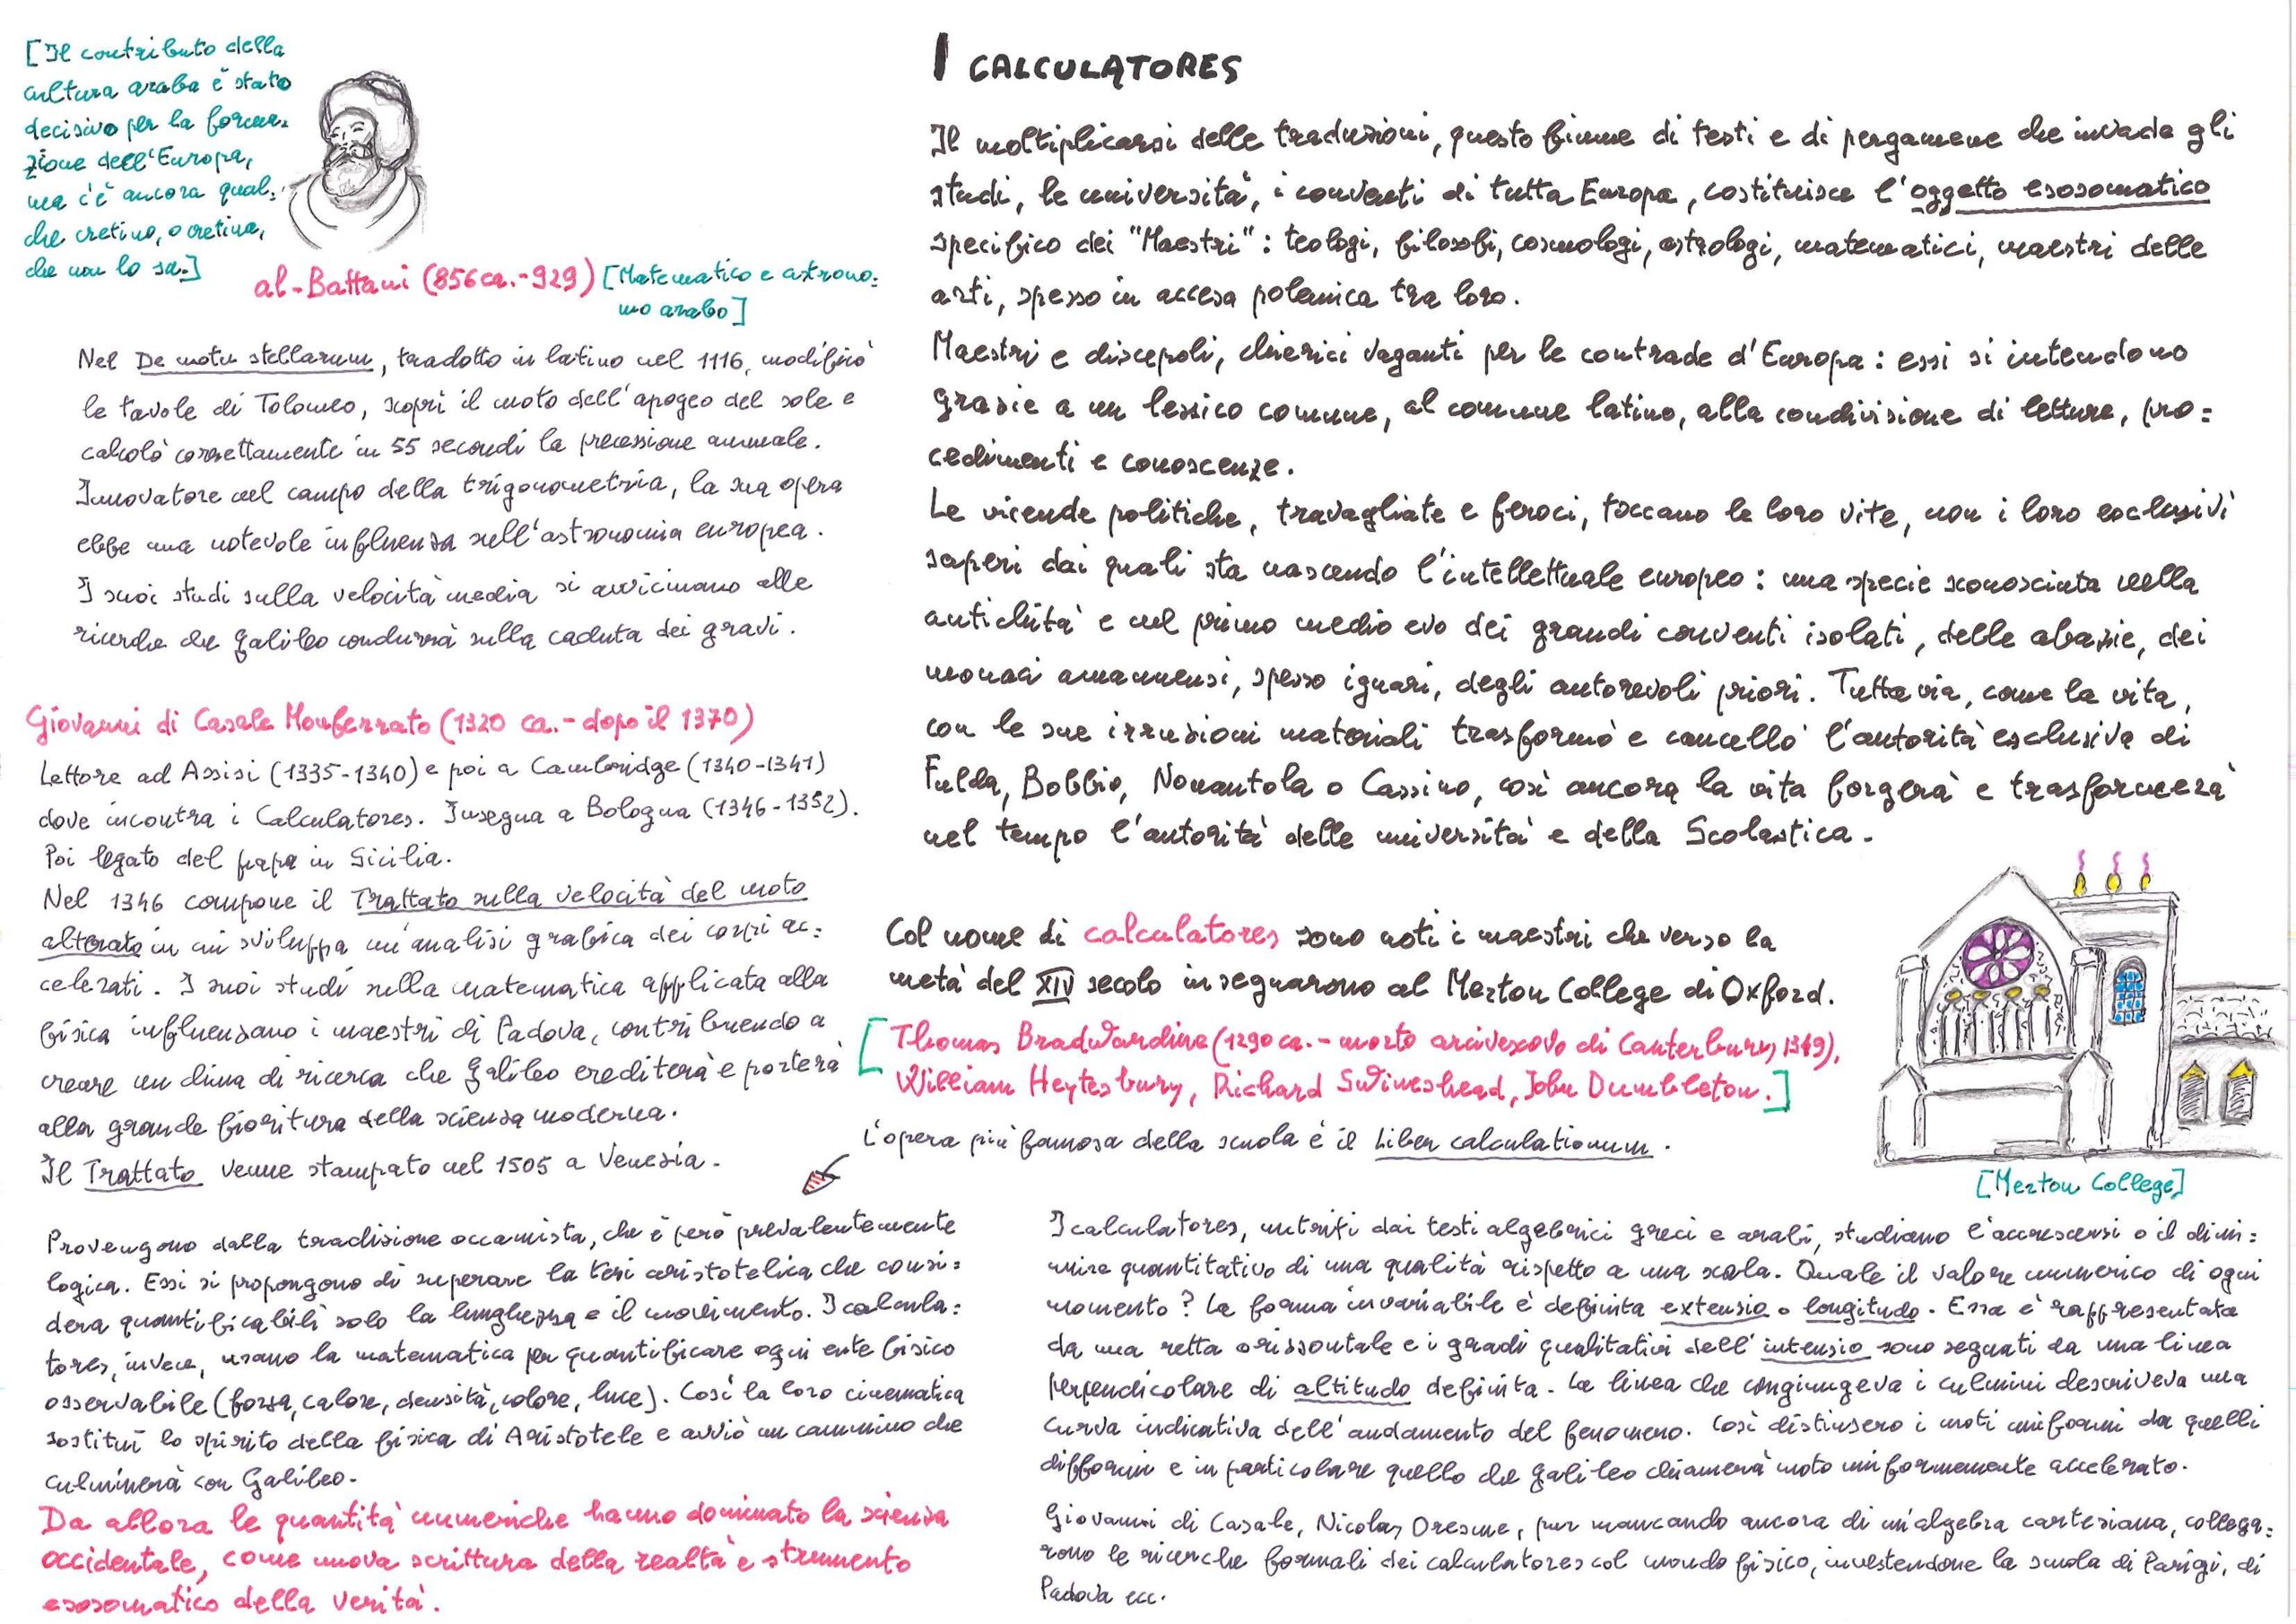 [Il contributo della
cultura araba è stato
decisivo per la forma=
zione dell'Europa,
ma c'è ancora qual=
che cretino, o cretina,
che non lo sa.]
al-Battani (856 ca.-929) [Matematico e astrono=
mo arabo]
Nel De motu stellarum, tradotto in latino nel 1116, modificò
le tavole di Tolomeo, scoprì il moto dell'apogeo del sole e
calcolò correttamente in 55 secondi la precessione annuale.
Innovatore nel campo della trigonometria, la sua opera
ebbe una notevole influenza sull'astronomia europea.
I suoi studi sulla velocità media si avvicinano alle
ricerche che Galileo condurrà sulla caduta dei gravi.
Giovanni di Casale Monferrato (1320 ca.- dopo il 1370)
Lettore ad Assisi (1335-1340) e poi a Cambridge (1340-1341)
dove incontra i Calculatores. Insegna a Bologna (1346-1352).
Poi legato del papa in Sicilia.
Nel 1346 compone il Trattato sulla velocità del moto
alterato in cui sviluppa un'analisi grafica dei corpi ac=
celerati. I suoi studi sulla matematica applicata alla
fisica influenzano i maestri di Padova, contribuendo a
creare un clima di ricerca che Galileo erediterà e porterà
alla grande fioritura della scienza moderna.
Il Trattato venne stampato nel 1505 a Venezia.
I CALCULATORES
Il moltiplicarsi delle traduzioni, questo fiume di testi e di pergamene che invade gli
studi, le università, i conventi di tutta Europa, costituisce l'oggetto esosomatico
specifico dei "Maestri": teologi, filosofi, cosmologi, astrologi, matematici, maestri delle
arti, spesso in accesa polemica tra loro.
Maestri e discepoli, chierici vaganti per le contrade d'Europa: essi si intendono
grazie a un lessico comune, al comune latino, alla condivisione di letture, pro=
cedimenti e conoscenze.
Le vicende politiche, travagliate e feroci, toccano le loro vite, non i loro esclusivi
saperi dai quali sta nascendo l'intellettuale europeo: una specie sconosciuta nella
antichità e nel primo medio evo dei grandi conventi isolati, delle abazie, dei
monaci amanuensi, spesso ignari, degli autorevoli priori. Tuttavia, come la vita,
con le sue irruzioni materiali trasformò e cancellò l'autorità esclusiva di
Fulda, Bobbio, Nonantola o Cassino, così ancora la vita forgerà e trasformerà
nel tempo l'autorità delle università e della Scolastica.
Col nome di calculatores sono noti i maestri che verso la
metà del XIV secolo insegnarono al Merton College di Oxford.
[Thomas Bradwardine (1290 ca.- morto arcivescovo di Canterbury 1349),
William Heytesbury, Richard Swineshead, John Dumbleton.]
L'opera più famosa della scuola è il Liber calculationum.
[Merton College]
Provengono dalla tradizione occamista, che è però prevalentemente
logica. Essi si propongono di superare la tesi aristotelica che consi=
dera quantificabili solo la lunghezza e il movimento. I calcula=
tores, invece, usano la matematica per quantificare ogni ente fisico
osservabile (forza, calore, densità, colore, luce). Così la loro cinematica
sostituì lo spirito della fisica di Aristotele e avviò un cammino che
culminerà con Galileo.
Da allora le quantità numeriche hanno dominato la scienza
occidentale, come nuova scrittura della realtà e strumento
esosomatico della verità.
I calculatores, nutriti dai testi algebrici greci e arabi, studiano l'accrescersi o il dimi=
nuire quantitativo di una qualità rispetto a una scala. Quale il valore numerico di ogni
momento? La forma invariabile è definita extensio o longitudo. Essa è rappresentata
da una retta orizzontale e i gradi qualitativi dell'intensio sono segnati da una linea
perpendicolare di altitudo definita. La linea che congiungeva i culmini descriveva una
curva indicativa dell'andamento del fenomeno. Così distinsero i moti uniformi da quelli
difformi e in particolare quello che Galileo chiamerà moto uniformemente accelerato.
Giovanni di Casale, Nicolas Oresme, pur mancando ancora di un'algebra cartesiana, collega=
rono le ricerche formali dei calculatores col mondo fisico, investendone la scuola di Parigi, di
Padova ecc.